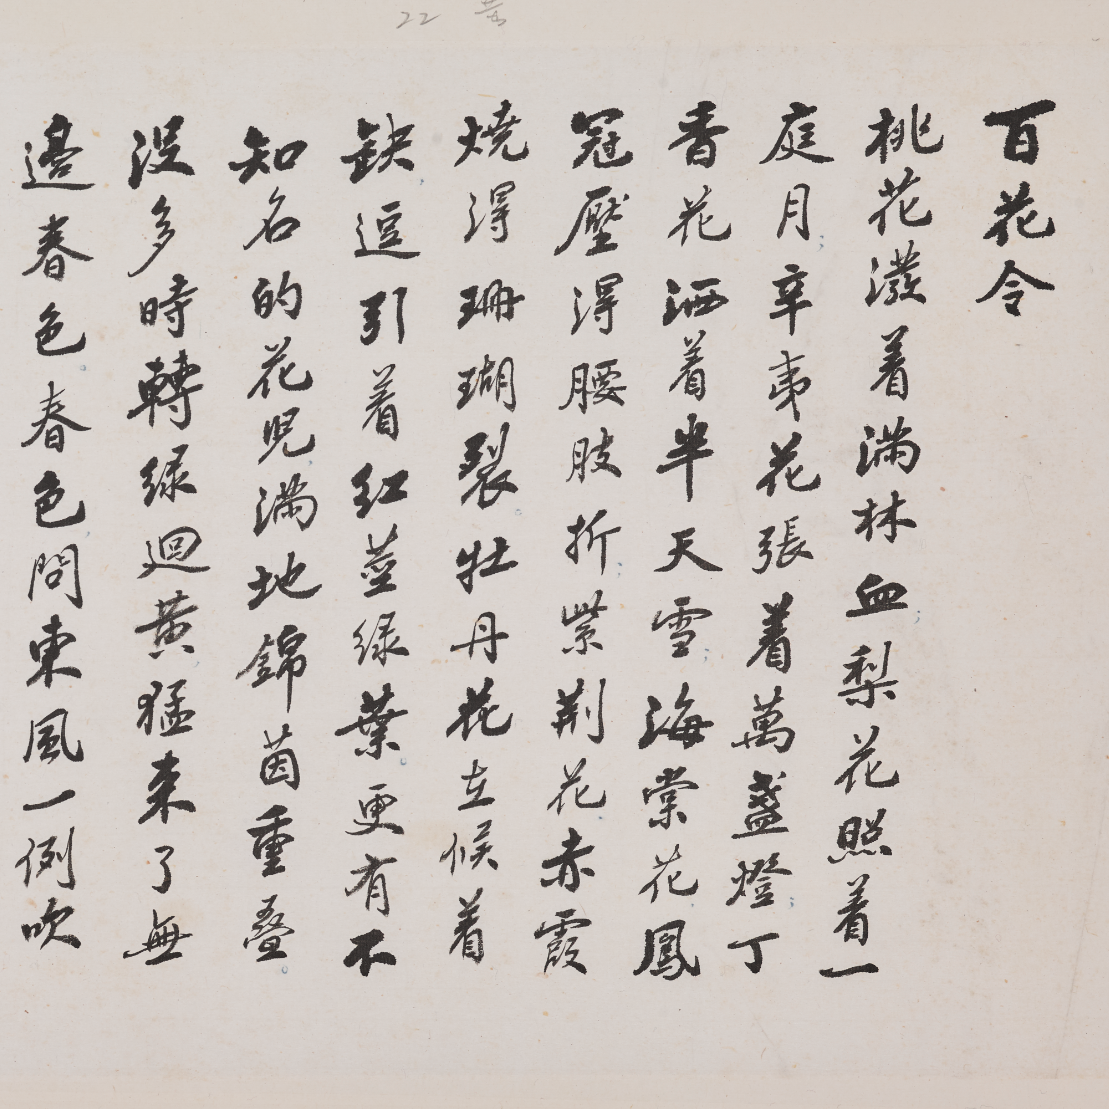 百花令
桃花潑着满林血梨花照着一
庭月辛夷花張着萬盞燈丁
香花洒着半天雪海棠花鳳
冠壓得腰肢折紫荆花赤霞
燒得珊瑚裂牡丹花立候着
缺逗引着红莖緑葉更有不
知名的花児满地錦茵重叠
没多時轉緑迴黄猛来了無
邊春色春色問東風一例吹
22